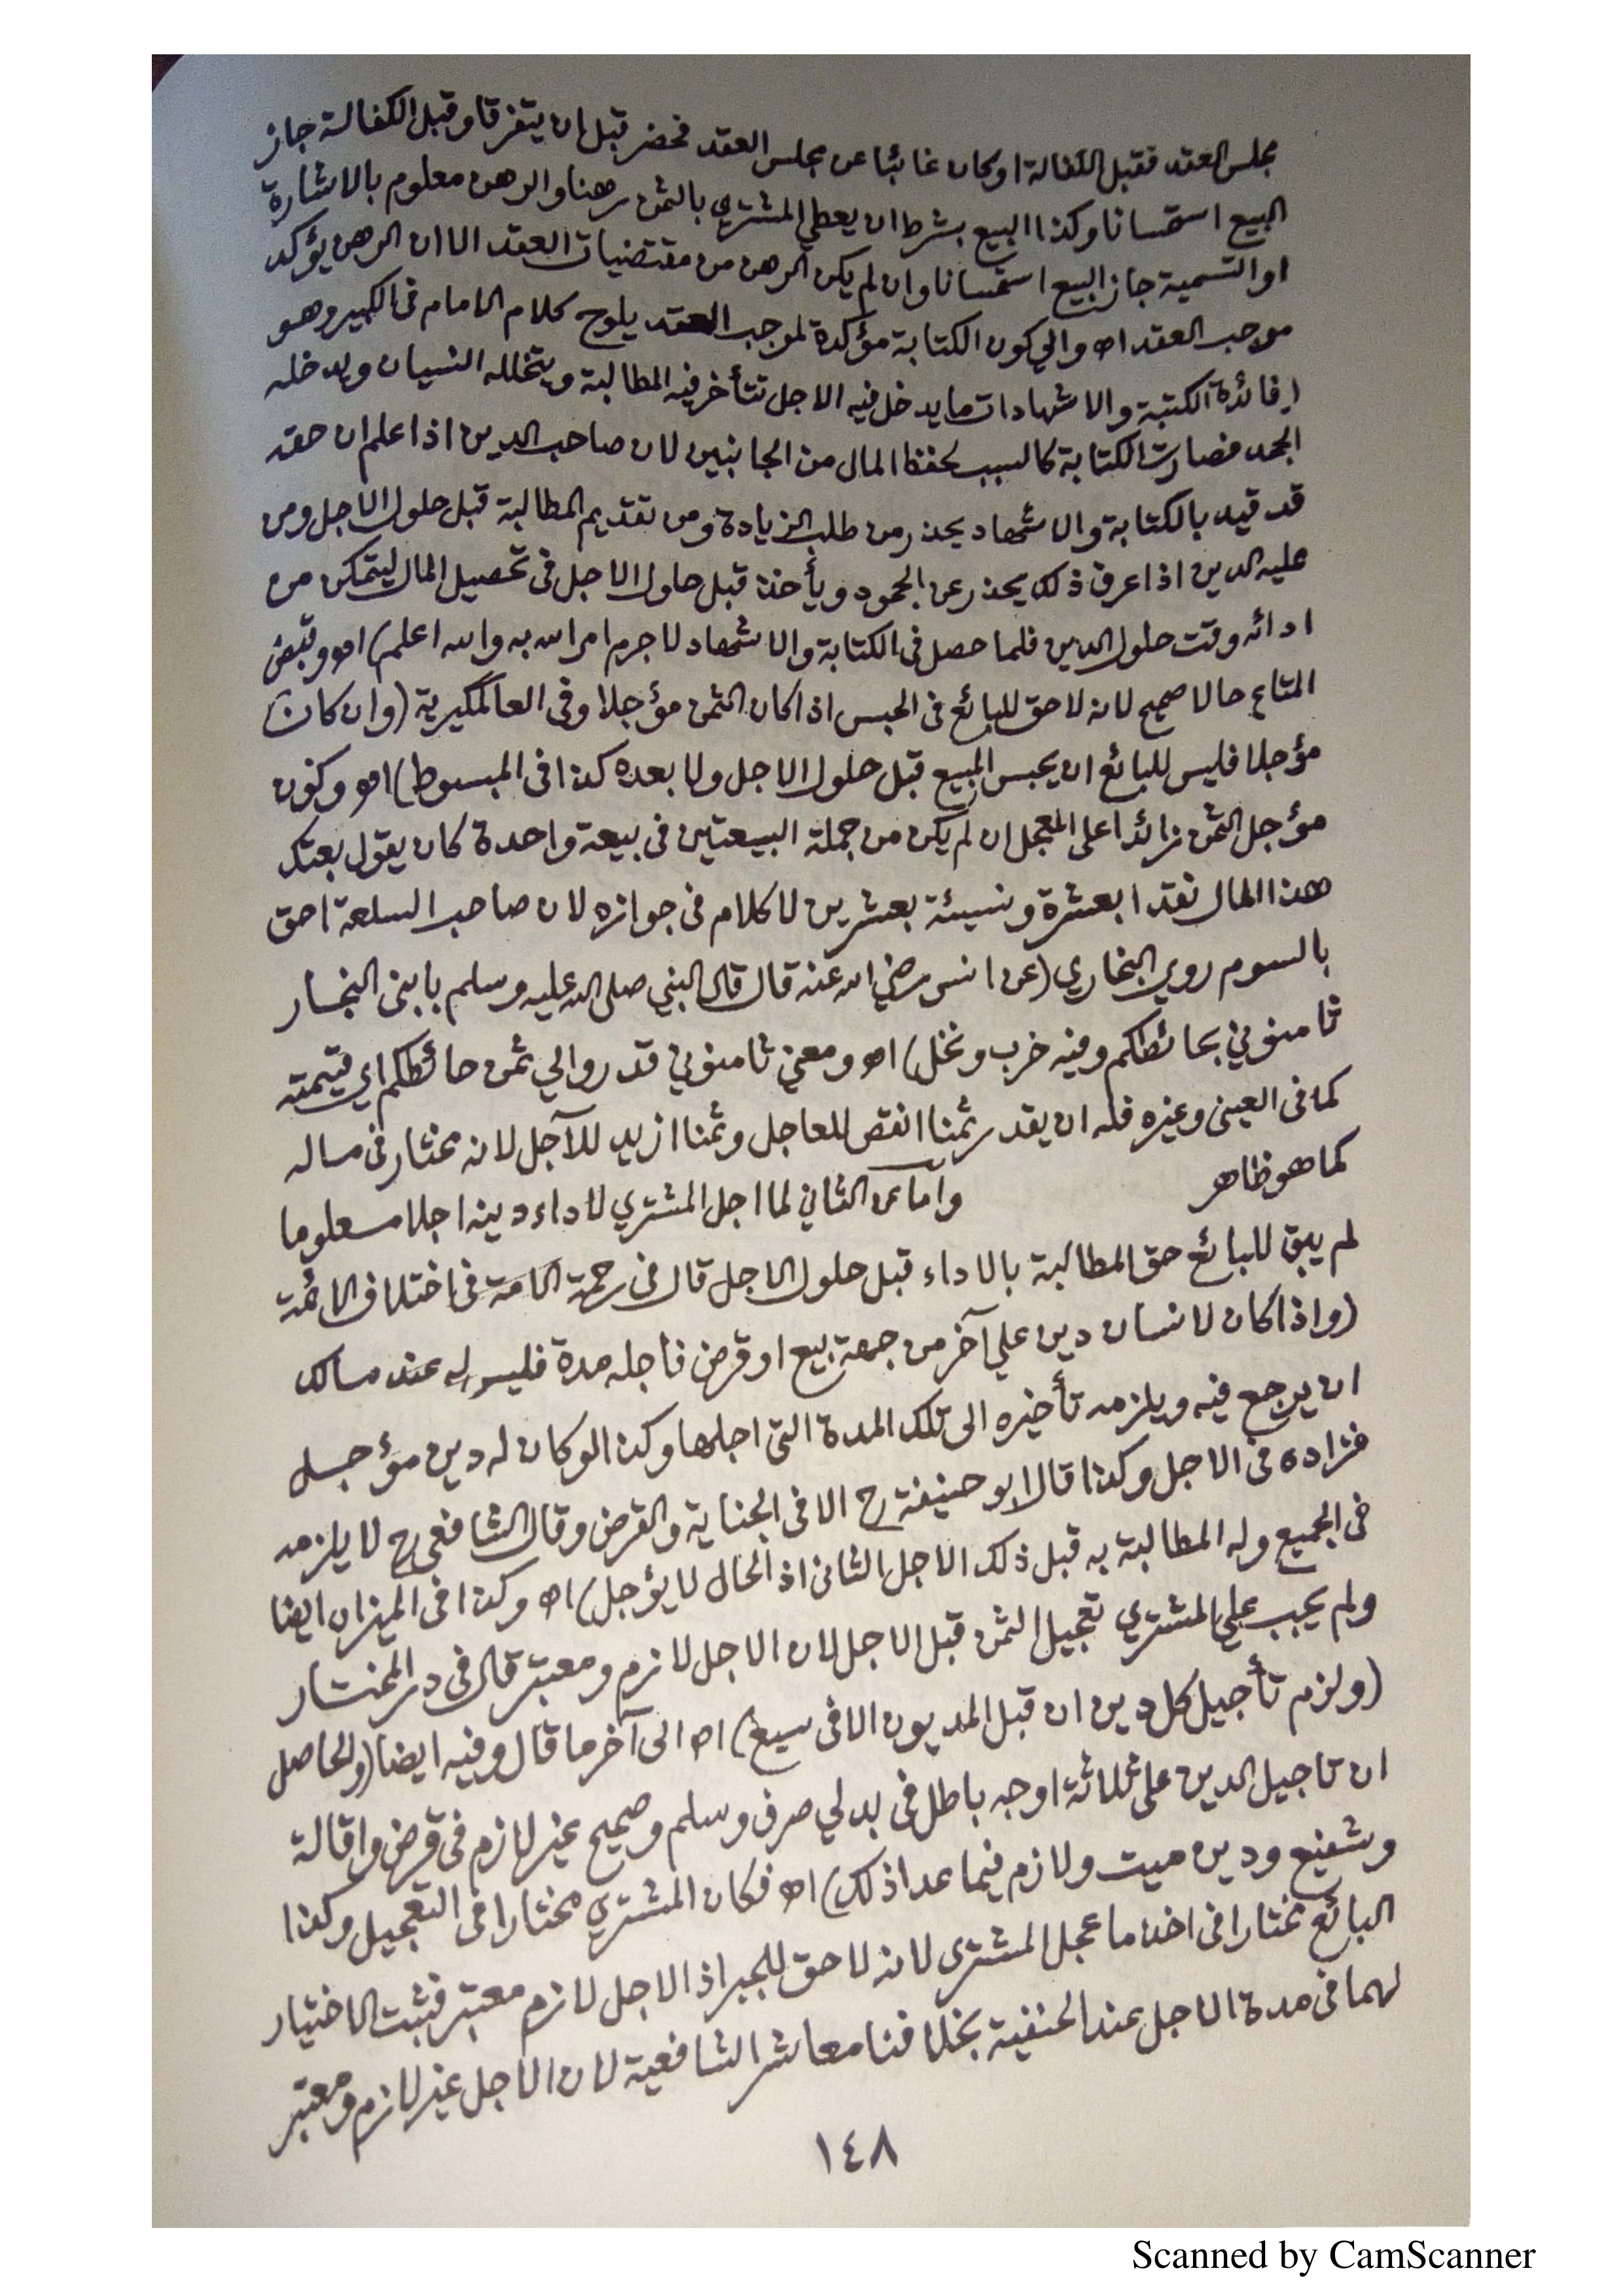 مجلس العقد فقبل الكفالة او كان غائبا عن مجلس العقد فحضر قبل ان يتفرقا وقبل الكفالة جاز
البيع استحسانا وكذا البيع بشرط ان يعطي المشتري بالثمن رهنا والرهن معلوم بالاشارة
او التسمية جاز البيع استحسانا وان لم يكن الرهن من مقتضيات العقد الا ان الرهن يؤكد
موجب العقد اه والي كون الكتابة مؤكدة لموجب العقد يلوح كلام الامام فى الكبير وهو
(فائدة الكتبة والاشهاد ان ما يدخل فيه الاجل تتأخر فيه المطالبة ويتخلله النسيان ويدخله
الجحد فصارت الكتابة كالسبب لحفظ المال من الجانبين لان صاحب الدين اذا علم ان حقه
قد قيد بالكتابة والاشهاد يحذر من طلب الزيادة ومن تقديم المطالبة قبل حلول الاجل ومن
عليه الدين اذا عرف ذلك يحذر عن الجحود ويأخذ قبل حلول الاجل فى تحصيل المال ليتمكن من
ادائه وقت حلول الدين فلما حصل فى الكتابة والاشهاد لا جرم امر الله به والله اعلم) اه وقبض
المتاع حالا صحيح لانه لا حق للبائع فى الحبس اذا كان الثمن مؤجلا وفى العالمكيرية (وان كان
مؤجلا فليس للبائع ان يحبس المبيع قبل حلول الاجل ولا بعده كذا فى المبسوط) اه وكون
مؤجل الثمن زائدا على المعجل ان لم يكن من جملة البيعتين فى بيعة واحدة كان يقول بعتك
هذا المال نقدا بعشرة ونسيئة بعشرين لا كلام فى جوازه لان صاحب السلعة احق
بالسوم روى البخاري (عن انس رضي الله عنه قال قال النبي صلى الله عليه وسلم يا بنى النجار
ثامنوني بحائطكم وفيه خرب ونخل) اه ومعني ثامنوني قدروا لي ثمن حائطكم اي قيمته
كما فى العينى وغيره فله ان يقدر ثمنا انقص للعاجل وثمنا ازيد للآجل لانه مختار فى ماله
كما هو ظاهر وأما عن الثاني لما اجل المشتري لاداء دينه اجلا معلوما
لم يبق للبائع حق المطالبة بالاداء قبل حلول الاجل قال فى رحمة الامة فى اختلاف الائمة
(واذا كان لانسان دين علي آخر من جهة بيع او قرض فاجله مدة فليس له عند مالك
ان يرجع فيه ويلزمه تأخيره الى تلك المدة التى اجلها وكذا لو كان له دين مؤجل
فزاده فى الاجل وكذا قال ابو حنيفة رح الا فى الجناية والقرض وقال الشافعى رح لا يلزمه
فى الجميع وله المطالبة به قبل ذلك الاجل الثانى اذ الحال لا يؤجل) اه وكذا فى الميزان ايضا
ولم يجب علي المشتري تعجيل الثمن قبل الاجل لان الاجل لازم ومعتبر قال فى در المختار
(ولزم تأجيل كل دين ان قبل المديون الا فى سبع) اه الى آخر ما قال وفيه ايضا (والحاصل
ان تاجيل الدين على ثلاثة اوجه باطل فى بدلي صرف وسلم وصحيح غير لازم فى قرض واقالة
وشفيع ودين ميت ولازم فيما عدا ذلك) اه فكان المشتري مختارا فى التعجيل وكذا
البائع مختارا فى اخذ ما عجل المشترى لانه لا حق للجبر اذ الاجل لازم معتبر فثبت الاختيار
لهما فى مدة الاجل عند الحنفية بخلافنا معاشر الشافعية لان الاجل غير لازم ومعتبر
١٤٨
Scanned by CamScanner